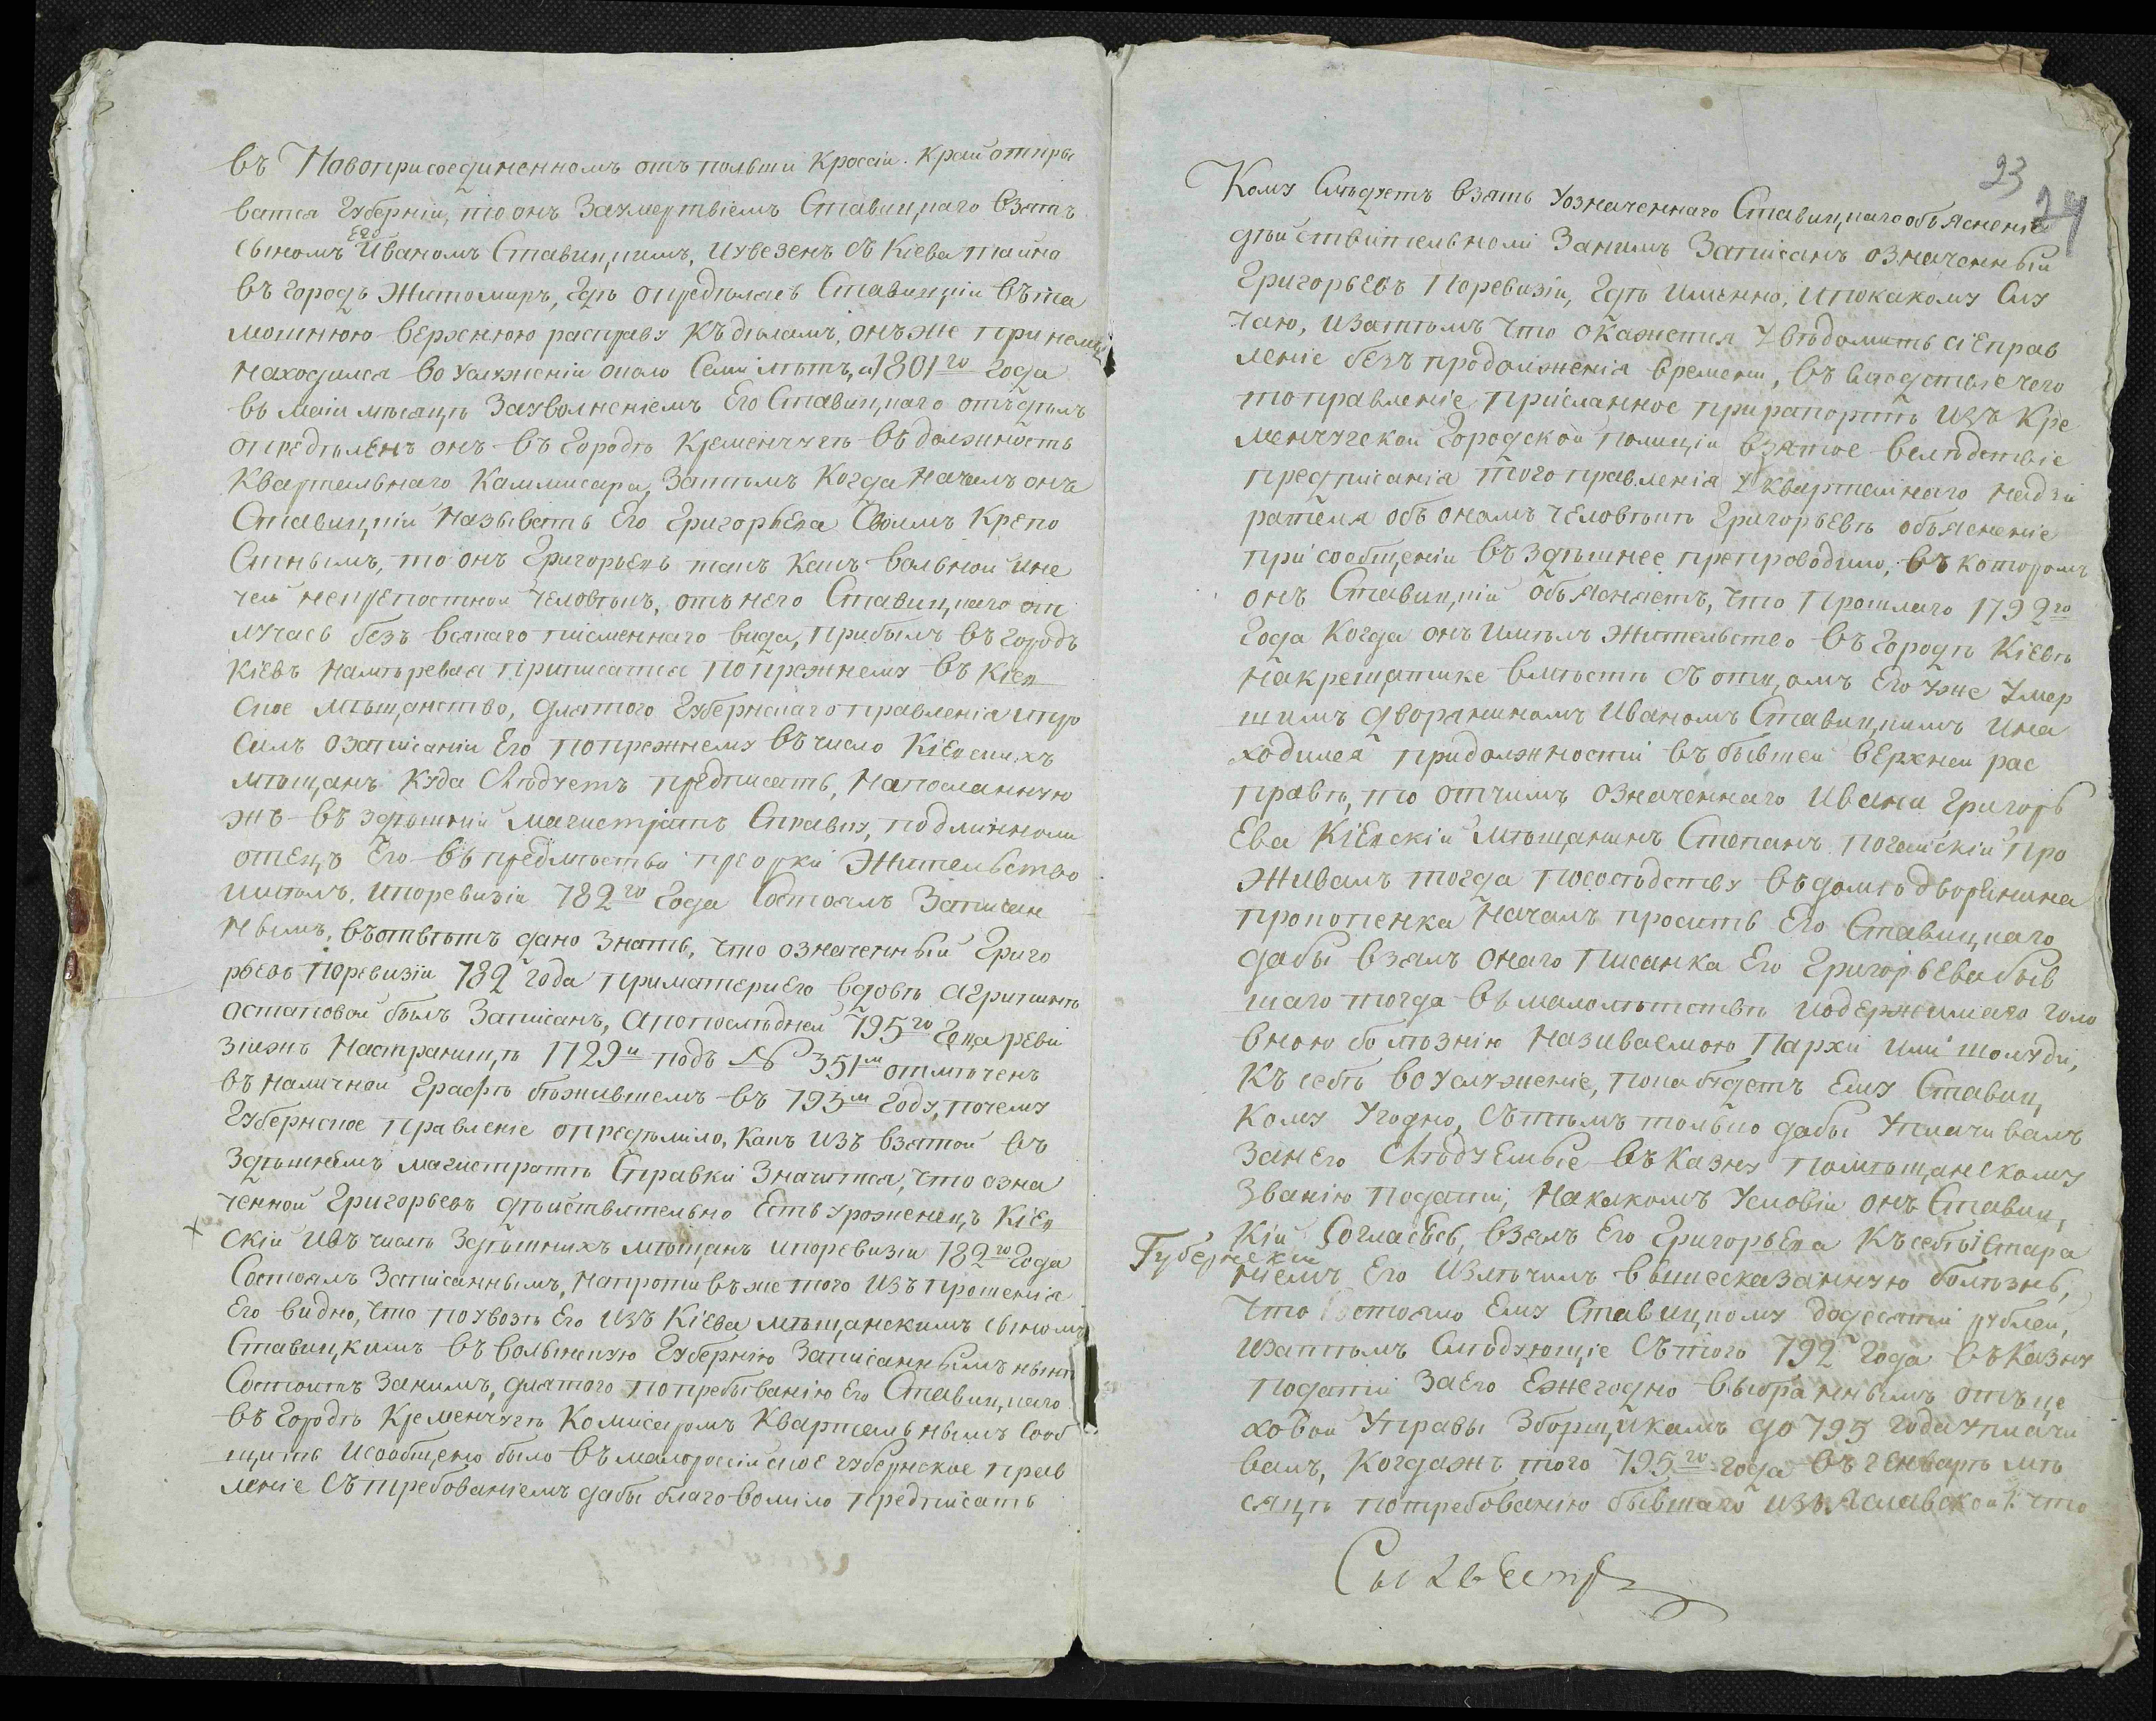 въ Новоприсоединенномъ отъ польши Кросіи. Край откры
ватся Губерніи, то онъ Заумертвіемъ Ставицкаго взятъ
Его
сыномъ Иваномъ Ставицкимъ, иувезенъ съ Кіева тайно
въ городъ Житомиръ, гдѣ определясь Ставицкій въта
мошнюю верхнюю расправу Къ дѣламъ, онъже при немъ
находился во услуженіи около Семи лѣтъ, а 1801го года
въ маіи мѣсяцѣ Заувольненіемъ Его Ставицкаго отъдѣлъ
опредѣленъ онъ въ городъ Кременчугъ въ должность
Квартальнаго Каммисара, Затѣмъ Когда Началъ онъ
Ставицкій Называть Его Григорьева Своимъ Крепо
стнымъ, то онъ Григорьевъ такъ какъ вольной ине
чей некрепостной человѣкъ, отъ него Ставицкаго от
лучась безъ всякаго писменнаго вида, прибылъ въ городъ
Кіевъ Намѣревая приписатся попрежнему въ Кіев
ское Мѣщанство, длятого Губернскаго правленія про
силъ озаписаніи Его попрежнему въ число Кіевскихъ
мѣщанъ Куда Слѣдуетъ предписать, Напосланную
жъ въ здѣшній магистратъ Справку, подлинноли
отецъ Его въ предмѣстьи преорки Жительство
имѣлъ, ипоревизіи 782го года Состоялъ Записан
нымъ, въотвѣтъ дано знать, что означенный Григо
рьевъ поревизіи 782 года приматери Его вдовѣ Агрипинѣ
остаповой былъ Записанъ, апопослѣдней 795го Года реви
зіижъ Настраницѣ 1729й подъ № 351м отмѣченъ
въ наличной Графѣ бѣжавшемъ въ 795м году, почему
Губернское правленіе опредѣлило, Какъ изъ взятой въ
Здѣшнемъ магистратѣ Справки Значится, что озна
ченной Григорьевъ дѣйствительно Есть уроженецъ Кіев
скій Изъ числа Здѣшнихъ мѣщанъ ипоревизіи 782го Года
Состоялъ Записаннымъ, Напротивъже того изъ прошенія
Его видно, что поувозѣ Его изъ Кіева мѣщанскимъ Сыномъ
Ставицкимъ въ волынскую Губернію Записаннымъ нынѣ
Состоитъ Занимъ, длятого попребыванію Его Ставицкаго
въ городѣ Кременчугѣ Комисаромъ Квартальнымъ Сооб
щить исообщено было въ малоросійское губернское прав
леніе Сътребованіемъ дабы благоволило предписать
23
24
Кому Слѣдуетъ взять Уозначеннаго Ставицкаго объясненіе
дѣйствительноли Занимъ Записанъ означенный
Григорьевъ поревизіи, гдѣ именно, ипокакому Слу
чаю, изатѣмъ что окажется Увѣдомить сіе прав
леніе безъ продолженія времени, въ Слѣдствіе чего
то правленіе присланное прирапортѣ изъ Кре
менчугской Городской полиціи взятое вслѣдствіе
предписанія того правленія У квартальнаго надзи
рателя объ ономъ человѣкѣ Григорьевѣ объясненіе
при сообщеніи въ здѣшнее препроводило, въ которомъ
онъ Ставицкій объясняетъ, что прошлаго 1792го
Года Когда онъ имѣлъ Жительство въ городѣ Кіевѣ
накрещатике вмѣстѣ съ отцомъ Его уже умер
шимъ дворяниномъ Иваномъ Ставицкимъ ина
ходился придолжности въ бывшей верхней рас
правѣ, то отчимъ означеннаго Ивана Григорь
Ева Кіевскій мѣщанинъ Степанъ Погайскій Про
живалъ тогда пососѣдству въ домѣ дворянина
пропопенка Началъ просить Его Ставицкаго
дабы взялъ онаго Писанка Его Григорьева быв
шаго тогда въ малолѣтствѣ иодержимаго голо
вною болѣзнію Називаемою Пархи или шолуди,
Къ себѣ во услуженіе, пока будетъ Ему Ставиц
кому угодно, Сътѣмъ только дабы Уплачивалъ
за него Слѣдуемые въ Казну помѣщанскому
Званію Подати, Накакомъ Условіи онъ Ставиц
Кій Согласясь, взялъ Его Григорьева Къ себѣ и Стара
Губернскій
ніемъ Его Излѣчилъ вышесказанную болѣзнь,
что Состояло Ему Ставицкому додесяти рублей,
изатѣмъ Слѣдующіе Сътого 792 года въ Казну
подати за Его Ежегодно выбраннымъ отъ це
ховой Управы Зборщикамъ до 795 года уплачи
валъ, Когдажъ того 795го года въ генварѣ мѣ
сяцѣ потребованію бывшаго изъяславской что